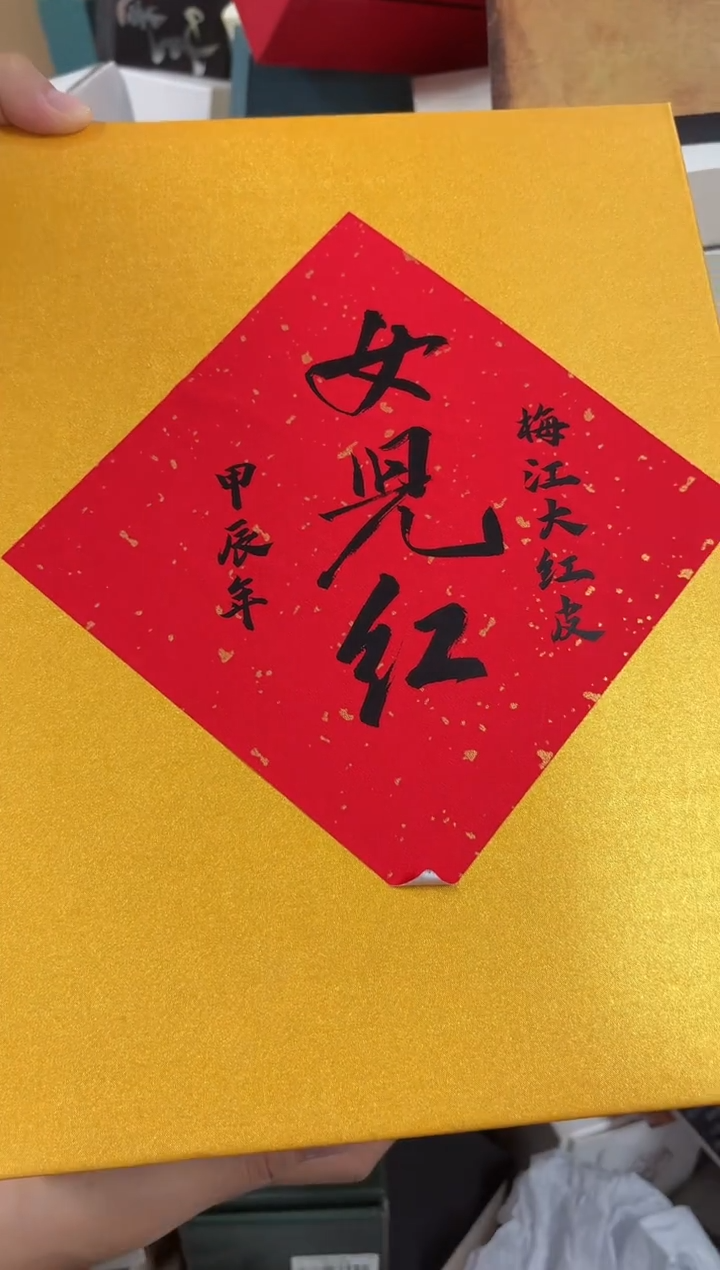 梅江大红皮
女児红
甲辰年